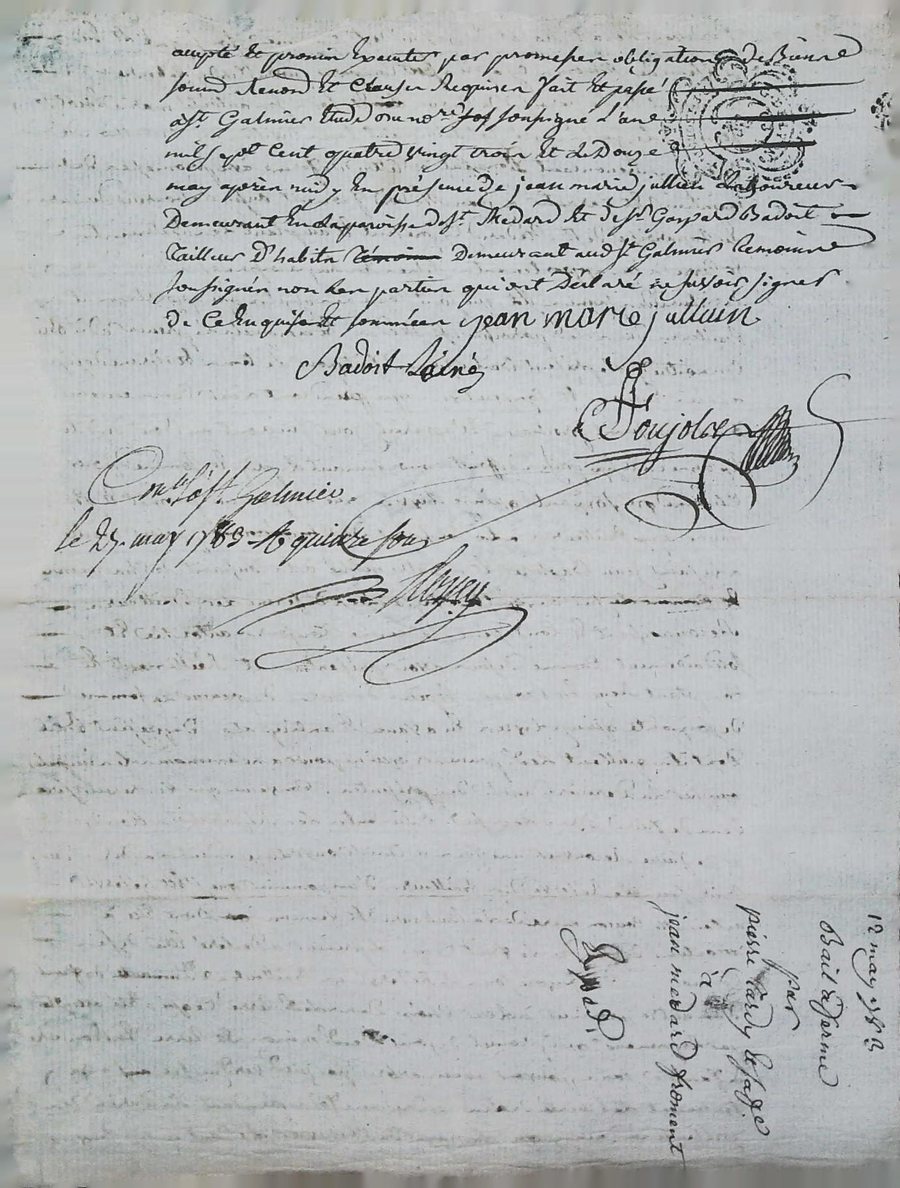 accepté et promis executer par promesses obligations de Biens
soumis Renons et Clauses Requises fait et passé
a st. Galmier Etude du nore. soussigné L'ane
mil sept Cent quatre vingt trois et Le Douze
may apres midy En présence de jean marie jullien Laboureur
Demeurant En la paroisse de st. Medard Et de sr. Gaspard Badoit
Tailleur D'habits Demeurant aud. st. Galmier temoins
soussignés non les parties qui ont Déclaré ne scavoir signer
de ce Enquises Et sommées jean marie julluin
Badoit Lainé
Poujolas
Conllé. à st. Galmier
le 27. may 1783 quinze sous
12 may 1783
Bail à ferme
par
pierre tardy et sage
à
jean medard froment
Expédié